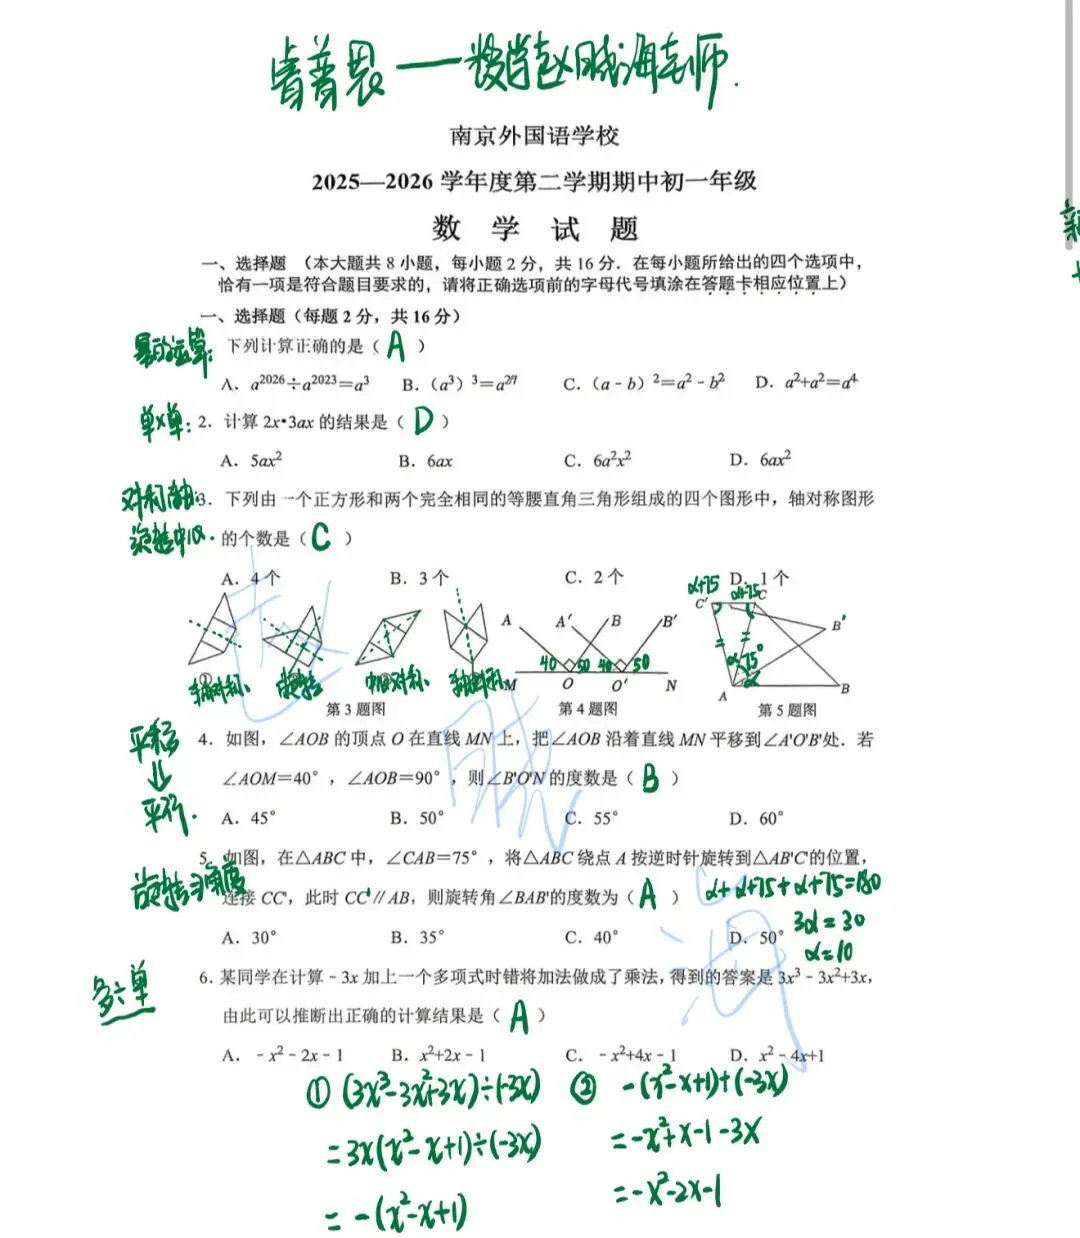 睿普思——数学赵晟海老师.
南京外国语学校
2025—2026 学年度第二学期期中初一年级
数 学 试 题
一、选择题 （本大题共 8 小题，每小题 2 分，共 16 分．在每小题所给出的四个选项中，
恰有一项是符合题目要求的，请将正确选项前的字母代号填涂在答题卡相应位置上）
一、选择题（每题 2 分，共 16 分）
幂的运算: 下列计算正确的是（ A ）
A．a²⁰²⁶÷a²⁰²³＝a³ B．（a³）³＝a²⁷ C．（a﹣b）²＝a²﹣b² D．a²+a²＝a⁴
单×单: 2．计算 2x•3ax 的结果是（ D ）
A．5ax² B．6ax C．6a²x² D．6ax²
对称轴. 3．下列由一个正方形和两个完全相同的等腰直角三角形组成的四个图形中，轴对称图形
旋转中心. 的个数是（ C ）
A．4 个 B．3 个 C．2 个 D．1 个
α+75 α+75 C' C B'
A A' B B'
40 50 40 50 α 75° α
M O O' N A B
① 轴对称 旋转 中心对称 轴对称
第 3 题图 第 4 题图 第 5 题图
平移 4．如图，∠AOB 的顶点 O 在直线 MN 上，把∠AOB 沿着直线 MN 平移到∠A'O'B'处．若
⇓ ∠AOM＝40°，∠AOB＝90°，则∠B'O'N 的度数是（ B ）
平行. A．45° B．50° C．55° D．60°
5．如图，在△ABC 中，∠CAB＝75°，将△ABC 绕点 A 按逆时针旋转到△AB'C'的位置，
旋转→角度 连接 CC'，此时 CC'∥AB，则旋转角∠BAB'的度数为（ A ） α+α+75+α+75=180
3α=30
A．30° B．35° C．40° D．50°
α=10
多÷单 6．某同学在计算﹣3x 加上一个多项式时错将加法做成了乘法，得到的答案是 3x³﹣3x²+3x，
由此可以推断出正确的计算结果是（ A ）
A．﹣x²﹣2x﹣1 B．x²+2x﹣1 C．﹣x²+4x﹣1 D．x²﹣4x+1
① (3x³-3x²+3x)÷(-3x) ② -(x²-x+1)+(-3x)
=3x(x²-x+1)÷(-3x) =-x²+x-1-3x
=-(x²-x+1) =-x²-2x-1
赵
晟
海